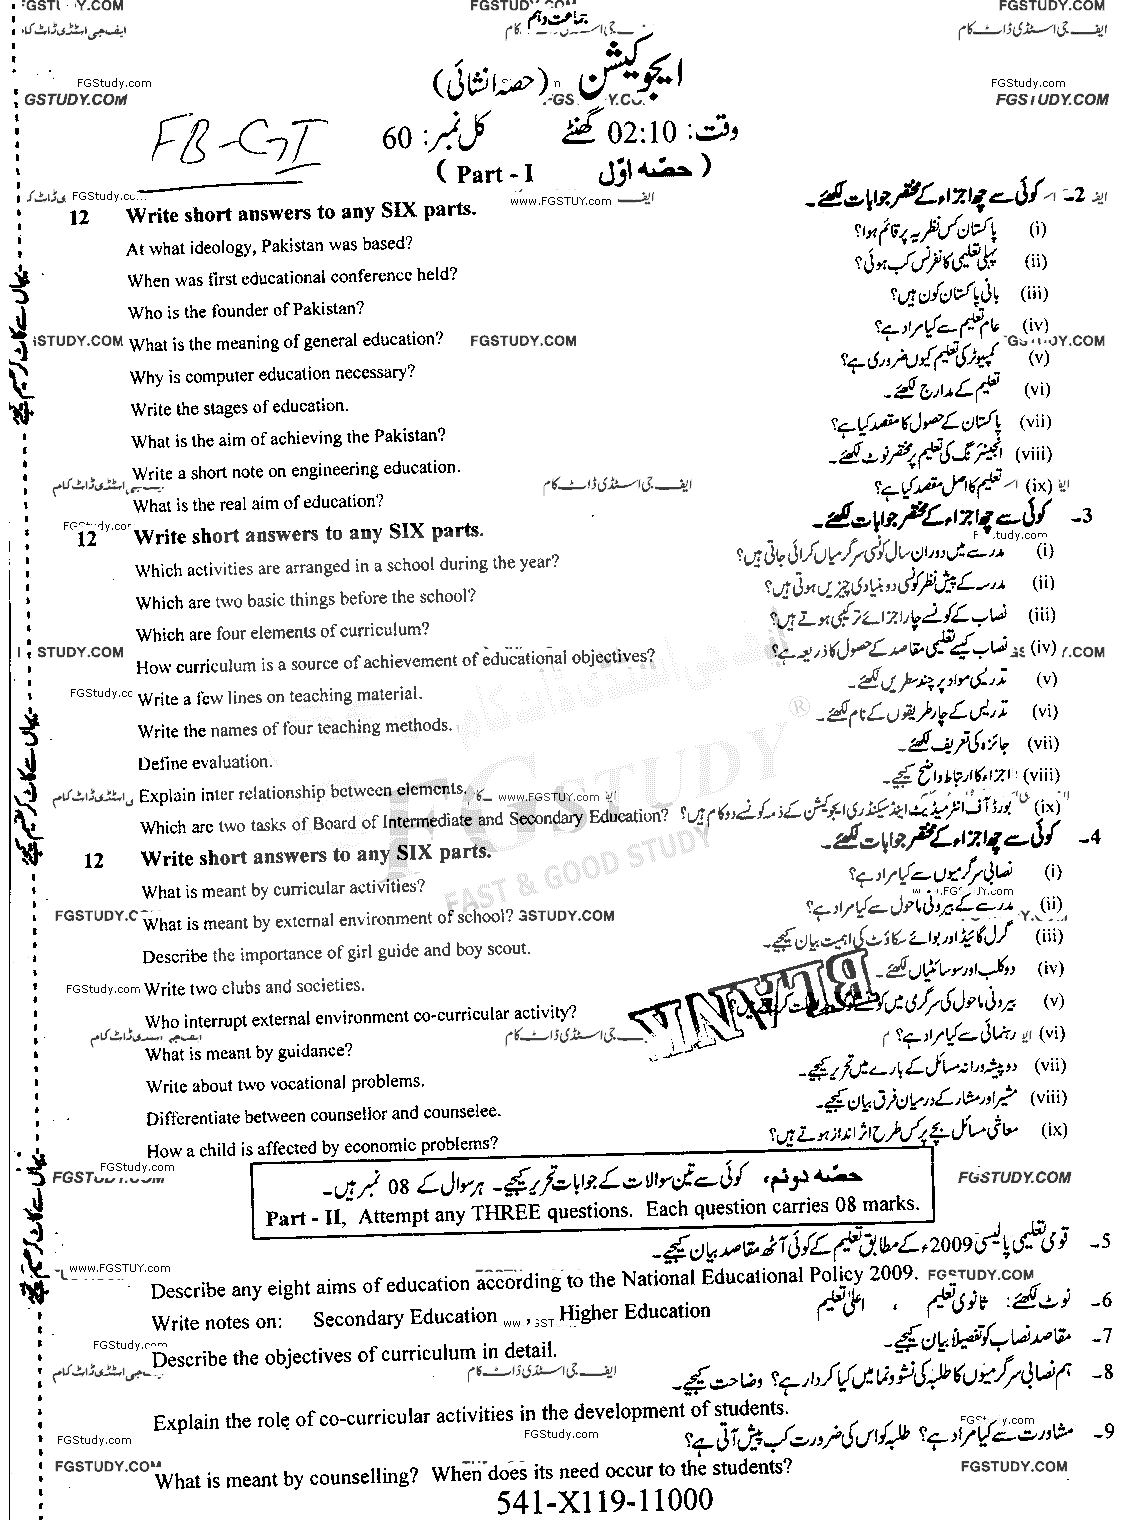 جماعت دہم
ایجوکیشن (حصہ انشائی)
وقت: 02:10 گھنٹے کل نمبر: 60
FB-GI
حصّہ اوّل ( Part - I )
2- کوئی سے چھ اجزاء کے مختصر جوابات لکھئے۔
12 Write short answers to any SIX parts.
(i) پاکستان کس نظریہ پر قائم ہوا؟
At what ideology, Pakistan was based?
(ii) پہلی تعلیمی کانفرنس کب ہوئی؟
When was first educational conference held?
(iii) بانی پاکستان کون ہیں؟
Who is the founder of Pakistan?
(iv) عام تعلیم سے کیا مراد ہے؟
What is the meaning of general education?
(v) کمپیوٹر کی تعلیم کیوں ضروری ہے؟
Why is computer education necessary?
(vi) تعلیم کے مدارج لکھئے۔
Write the stages of education.
(vii) پاکستان کے حصول کا مقصد کیا ہے؟
What is the aim of achieving the Pakistan?
(viii) انجینئرنگ کی تعلیم پر مختصر نوٹ لکھئے۔
Write a short note on engineering education.
(ix) تعلیم کا اصل مقصد کیا ہے؟
What is the real aim of education?
3- کوئی سے چھ اجزاء کے مختصر جوابات لکھئے۔
12 Write short answers to any SIX parts.
(i) مدرسے میں دوران سال کونسی سرگرمیاں کرائی جاتی ہیں؟
Which activities are arranged in a school during the year?
(ii) مدرسہ کے پیش نظر کونسی دو بنیادی چیزیں ہوتی ہیں؟
Which are two basic things before the school?
(iii) نصاب کے کونسے چار اجزائے ترکیبی ہوتے ہیں؟
Which are four elements of curriculum?
(iv) نصاب کیسے تعلیمی مقاصد کے حصول کا ذریعہ ہے؟
How curriculum is a source of achievement of educational objectives?
(v) تدریسی مواد پر چند سطریں لکھئے۔
Write a few lines on teaching material.
(vi) تدریس کے چار طریقوں کے نام لکھئے۔
Write the names of four teaching methods.
(vii) جائزہ کی تعریف لکھئے۔
Define evaluation.
(viii) اجزاء کا ارتباط واضح کیجیے۔
Explain inter relationship between elements.
(ix) بورڈ آف انٹرمیڈیٹ اینڈ سیکنڈری ایجوکیشن کے ذمہ کونسے دو کام ہیں؟
Which are two tasks of Board of Intermediate and Secondary Education?
4- کوئی سے چھ اجزاء کے مختصر جوابات لکھئے۔
12 Write short answers to any SIX parts.
(i) نصابی سرگرمیوں سے کیا مراد ہے؟
What is meant by curricular activities?
(ii) مدرسے کے بیرونی ماحول سے کیا مراد ہے؟
What is meant by external environment of school?
(iii) گرل گائیڈ اور بوائے سکاؤٹ کی اہمیت بیان کیجیے۔
Describe the importance of girl guide and boy scout.
(iv) دو کلب اور سوسائٹیاں لکھئے۔
Write two clubs and societies.
(v) بیرونی ماحول کی سرگرمی میں
Who interrupt external environment co-curricular activity?
BLANK
(vi) رہنمائی سے کیا مراد ہے؟
What is meant by guidance?
(vii) دو پیشہ ورانہ مسائل کے بارے میں تحریر کیجیے۔
Write about two vocational problems.
(viii) مشیر اور مشار کے درمیان فرق بیان کیجیے۔
Differentiate between counsellor and counselee.
(ix) معاشی مسائل بچے پر کس طرح اثر انداز ہوتے ہیں؟
How a child is affected by economic problems?
حصّہ دوئم، کوئی سے تین سوالات کے جوابات تحریر کیجیے۔ ہر سوال کے 08 نمبر ہیں۔
Part - II, Attempt any THREE questions. Each question carries 08 marks.
5- قومی تعلیمی پالیسی 2009ء کے مطابق تعلیم کے کوئی آٹھ مقاصد بیان کیجیے۔
Describe any eight aims of education according to the National Educational Policy 2009.
6- نوٹ لکھئے: ثانوی تعلیم ، اعلیٰ تعلیم
Write notes on: Secondary Education , Higher Education
7- مقاصد نصاب کو تفصیلاً بیان کیجیے۔
Describe the objectives of curriculum in detail.
8- ہم نصابی سرگرمیوں کا طلبہ کی نشوونما میں کیا کردار ہے؟ وضاحت کیجیے۔
Explain the role of co-curricular activities in the development of students.
9- مشاورت سے کیا مراد ہے؟ طلبہ کو اس کی ضرورت کب پیش آتی ہے؟
What is meant by counselling? When does its need occur to the students?
541-X119-11000
FGSTUDY
FAST & GOOD STUDY
FGSTUDY.COM
FGStudy.com
www.FGSTUY.COM
ایف جی اسٹڈی ڈاٹ کام